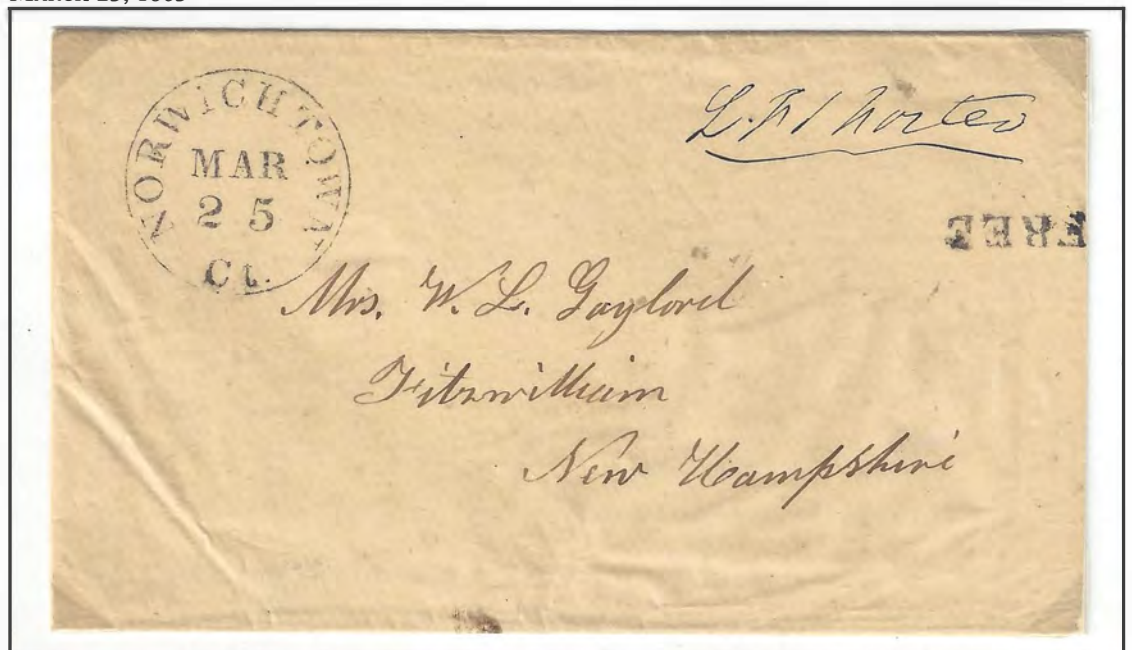 NORWICH TOWN
MAR
25
Ct.
FREE
Mrs. W. L. Gaylord
Fitzwilliam
New Hampshire